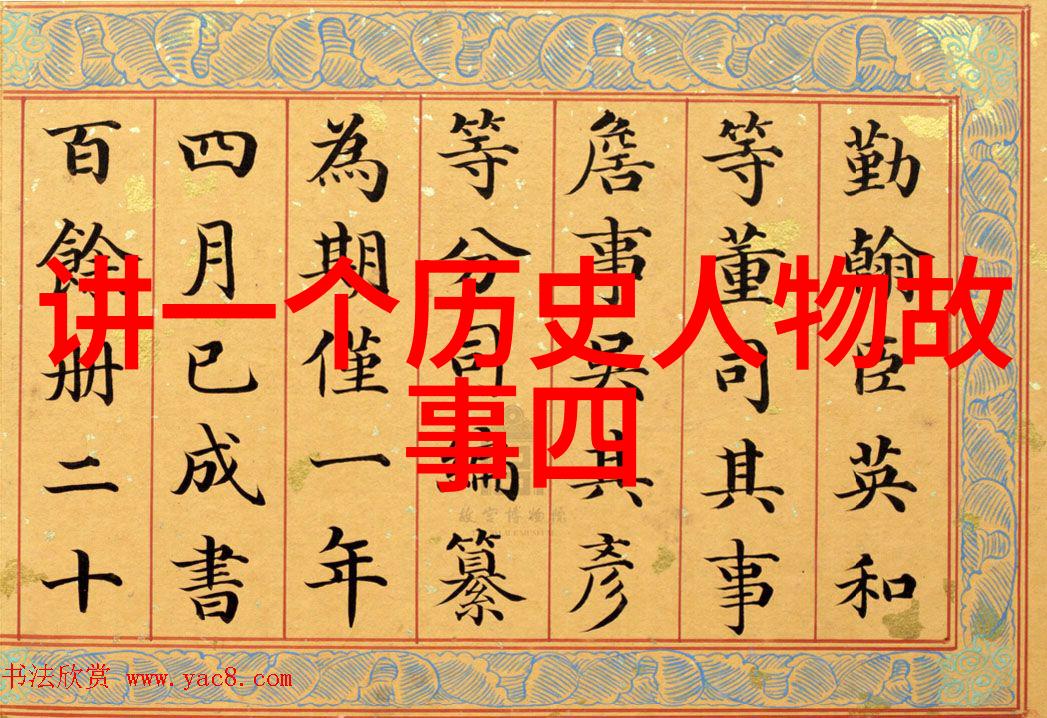 讲一个历史人物故
事四
勤翰臣英和
等董司其事
詹事吳其彥
等分司編纂
為期僅一年
四月已成書
百餘册二十
故宫博物院
书法欣赏 www.yac8.com